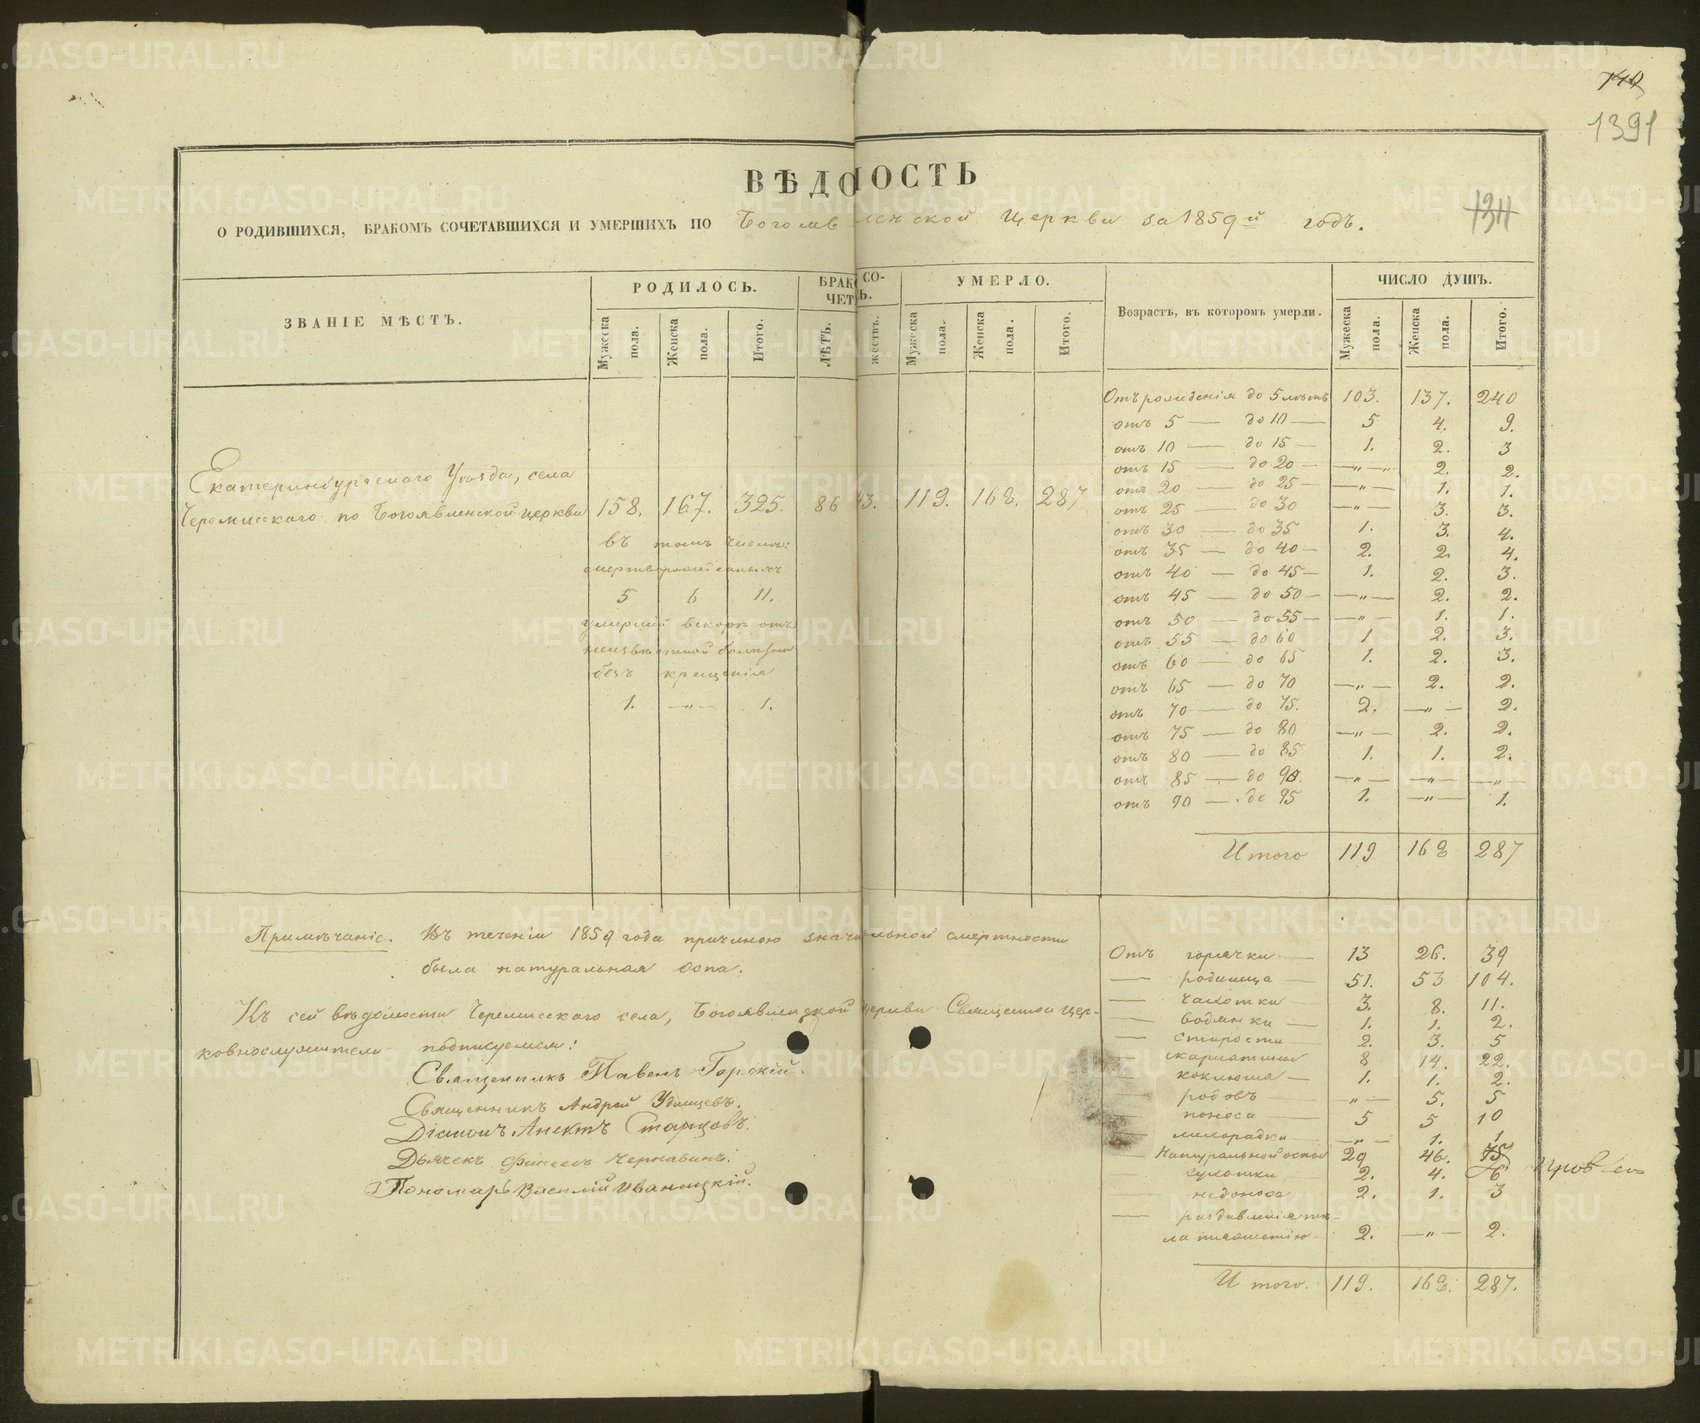 1391
134
ВѢДОМОСТЬ
О РОДИВШИХСЯ, БРАКОМЪ СОЧЕТАВШИХСЯ И УМЕРШИХЪ ПО Богоявленской Церкви за 1859й годъ.
ЗВАНІЕ МѢСТЪ. РОДИЛОСЬ. УМЕРЛО. Возрастъ, въ которомъ умерли. ЧИСЛО ДУШЪ.
Мужеска пола. Женска пола. Итого. Мужеска пола. Женска пола. Итого. Мужеска пола. Женска пола. Итого.
Екатеринбургскаго Уѣзда, села
Черемисскаго по Богоявленской церкви 158. 167. 325. 86 43. 119. 168. 287
въ томъ числѣ:
мертворожденныхъ
5 6 11.
умершій вскорѣ отъ
неизвѣстной болѣзни
безъ крещенія
1. —„— 1.
Отъ рожденія до 5 лѣтъ 103. 137. 240
отъ 5 — до 10 — 5 4. 9.
отъ 10 — до 15 — 1. 2. 3
отъ 15 — до 20 — —„— 2. 2.
отъ 20 — до 25 — —„— 1. 1.
отъ 25 — до 30 —„— 3. 3.
отъ 30 — до 35 1. 3. 4.
отъ 35 — до 40 — 2. 2. 4.
отъ 40 — до 45 — 1. 2. 3.
отъ 45 — до 50 — —„— 2. 2.
отъ 50 — до 55 — —„— 1. 1.
отъ 55 — до 60 1 2. 3.
отъ 60 — до 65 1. 2. 3.
отъ 65 — до 70 —„— 2. 2.
отъ 70 — до 75. 2. —„— 2.
отъ 75 — до 80 —„— 2. 2.
отъ 80 — до 85 1. 1. 2.
отъ 85 — до 90. —„— —„— —„—
отъ 90 — до 95 1. —„— 1.
Итого 119 168 287
Примѣчаніе. Въ теченіи 1859 года причиною значительной смертности
была натуральная оспа.
Къ сей вѣдомости Черемисскаго села, Богоявленской церкви Священно цер-
ковнослужители подписуемся:
Священникъ Павелъ Горскій.
Священникъ Андрей Удинцевъ.
Діаконъ Анектъ Старцовъ.
Дьячекъ Финеесъ Чернавинъ.
Пономарь Василій Иваницкій.
Отъ горячки — 13 26. 39
— родимца — 51. 53 104.
— чахотки — 3. 8. 11.
— водянки — 1. 1. 2.
— старости — 2. 3. 5
— скарлатины 8 14. 22.
— коклюша — 1. 1. 2.
— родовъ — —„— 5. 5
— поноса — 5 5 10
— лихорадки — —„— 1. 1
— Натуральной оспы 29 46. 75
— сухотки — 2. 4. 6
— недоноса 2. 1. 3
— раздавленія тѣ-
ла тяжестію — 2. —„— 2.
Итого. 119. 168. 287.
METRIKI.GASO-URAL.RU